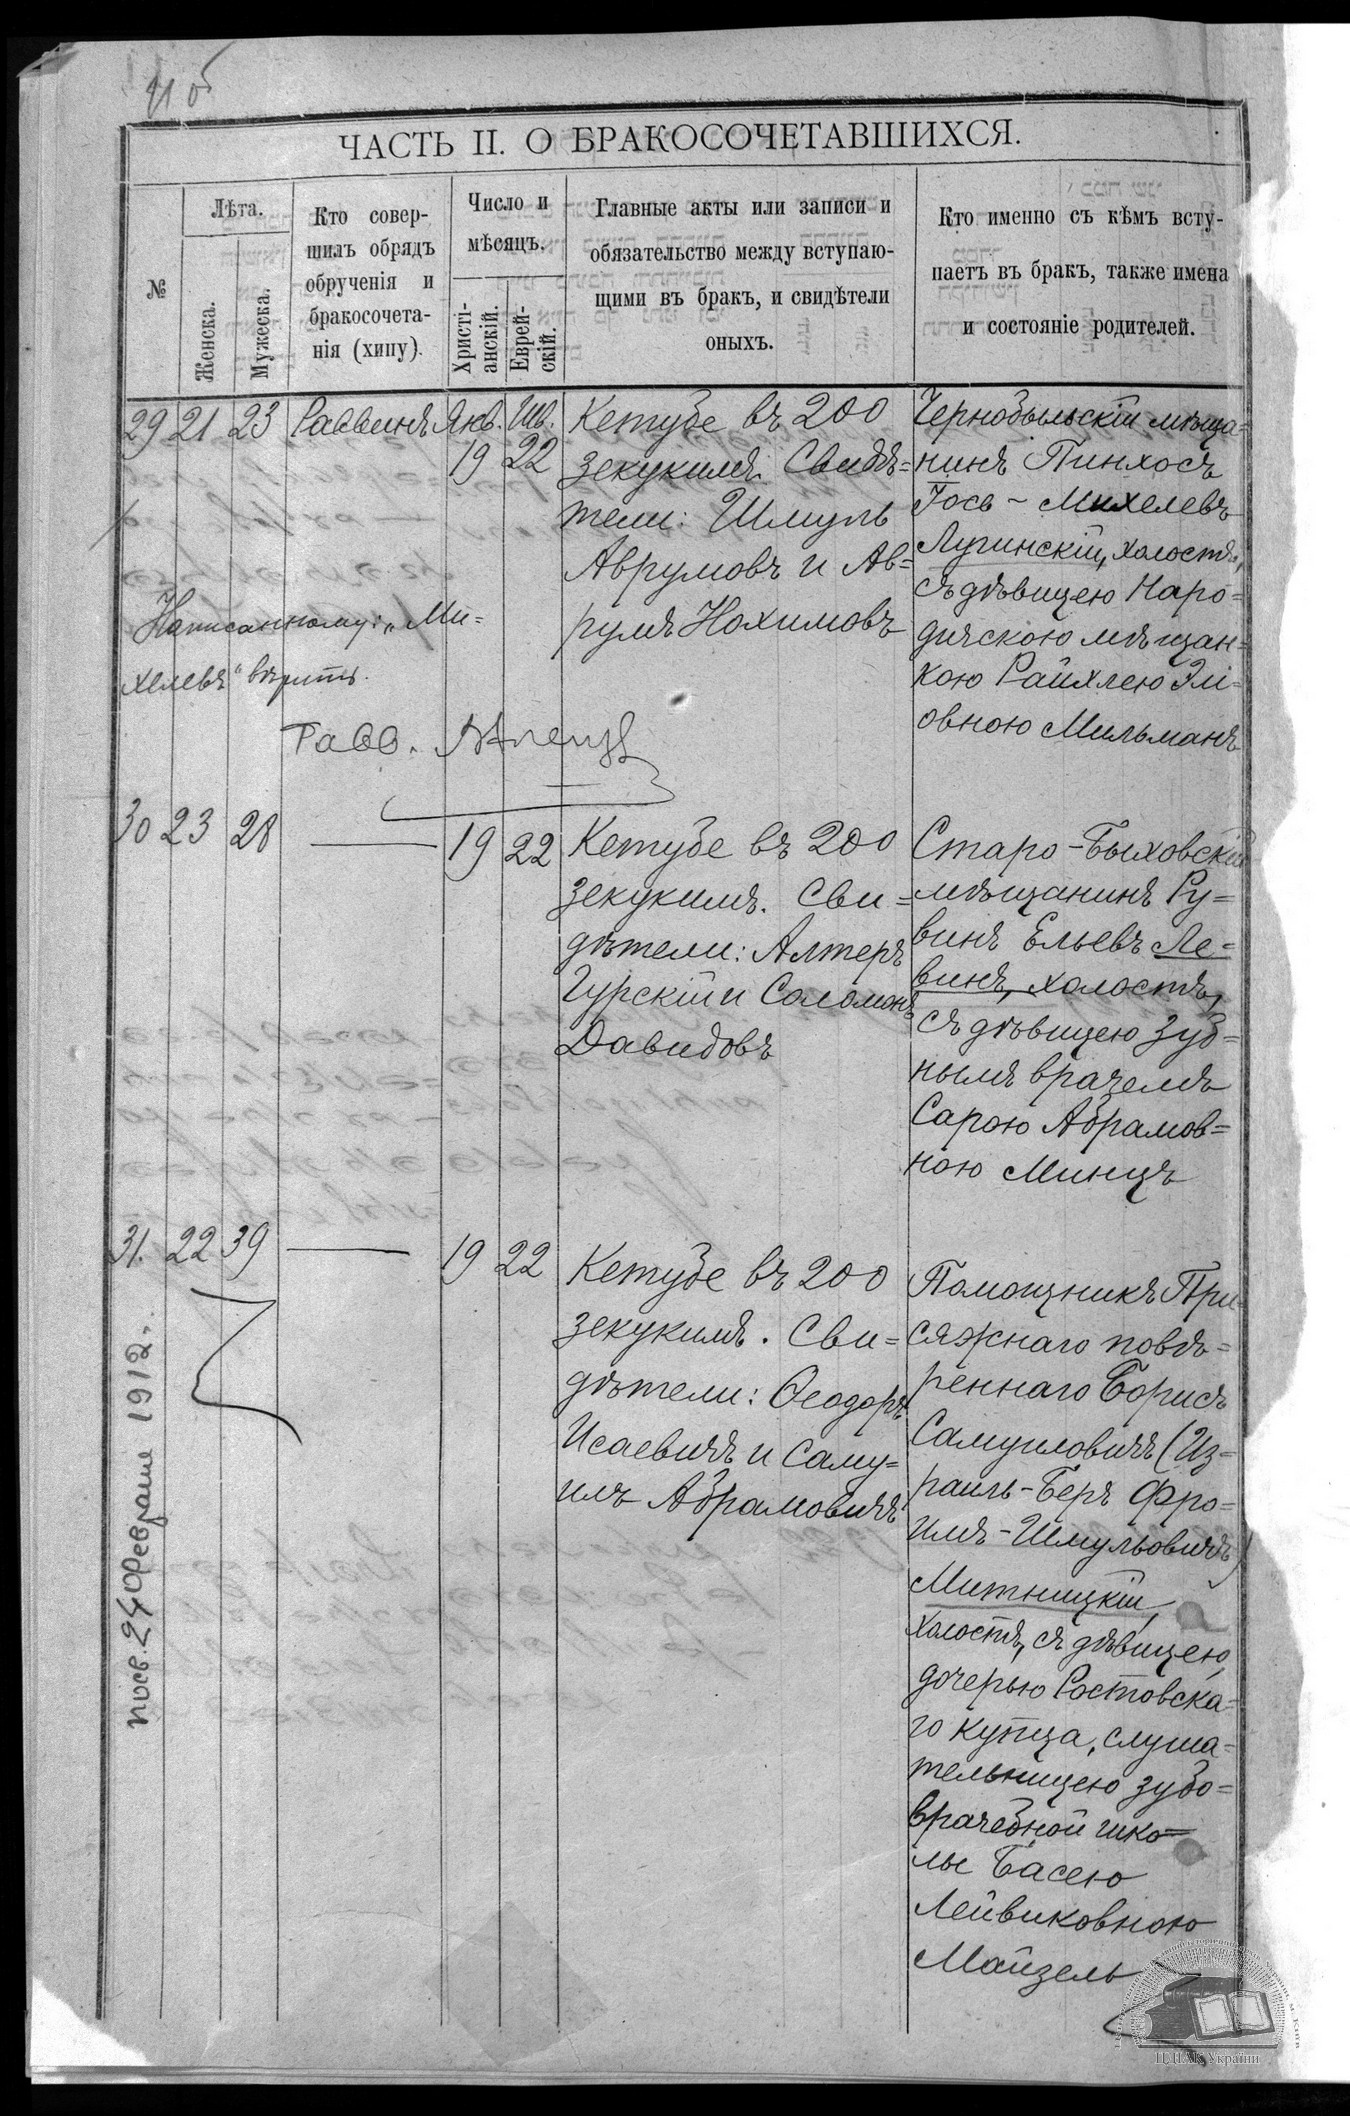 ЧАСТЬ II. О БРАКОСОЧЕТАВШИХСЯ.
№
Лѣта.
Женска.
Мужеска.
Кто совер-
шилъ обрядъ
обрученія и
бракосочета-
нія (хипу).
Число и
мѣсяцъ.
Христі-
анскій.
Еврей-
скій.
Главные акты или записи и
обязательство между вступаю-
щими въ бракъ, и свидѣтели
оныхъ.
Кто именно съ кѣмъ всту-
паетъ въ бракъ, также имена
и состояніе родителей.
29 21 23 Раввинъ Янв. 19 Шв. 22
Кетубе въ 200
зекукимъ. Свидѣ=
тели: Шмуль
Аврумовъ и Ав=
румъ Нохимовъ
Чернобыльскій мѣща=
нинъ Пинхосъ
Гось - Михелевъ
Лугинскій, холостъ,
съ дѣвицею Наро=
дичскою мѣщан=
кою Райхлею Элі=
овною Мильманъ
Написанному: „Ми=
хелевъ" вѣрить.
Равв.
30 23 28 — 19 22
Кетубе въ 200
зекукимъ. Сви=
дѣтели: Алтеръ
Гурскій и Соломонъ
Давидовъ
Старо-Быховскій
мѣщанинъ Ру=
винъ Ельевъ Ле=
винъ, холостъ,
съ дѣвицею зуб=
нымъ врачемъ
Сарою Абрамов=
ною Минцъ
31. 22 39 — 19 22
Кетубе въ 200
зекукимъ. Сви=
дѣтели: Ѳеодоръ
Исаевичъ и Саму=
илъ Абрамовичъ
Помощникъ При=
сяжнаго повѣ=
реннаго Борисъ
Самуиловичъ (Из=
раиль-Беръ Фро=
имъ-Шмульовичъ)
Митницкій,
холостъ, съ дѣвицею,
дочерью Ростовска=
го купца, слуша=
тельницею зубо=
врачебной шко=
лы Басею
Лейвиковною
Майзель
24 Февраля 1912.
ЦДІАК України